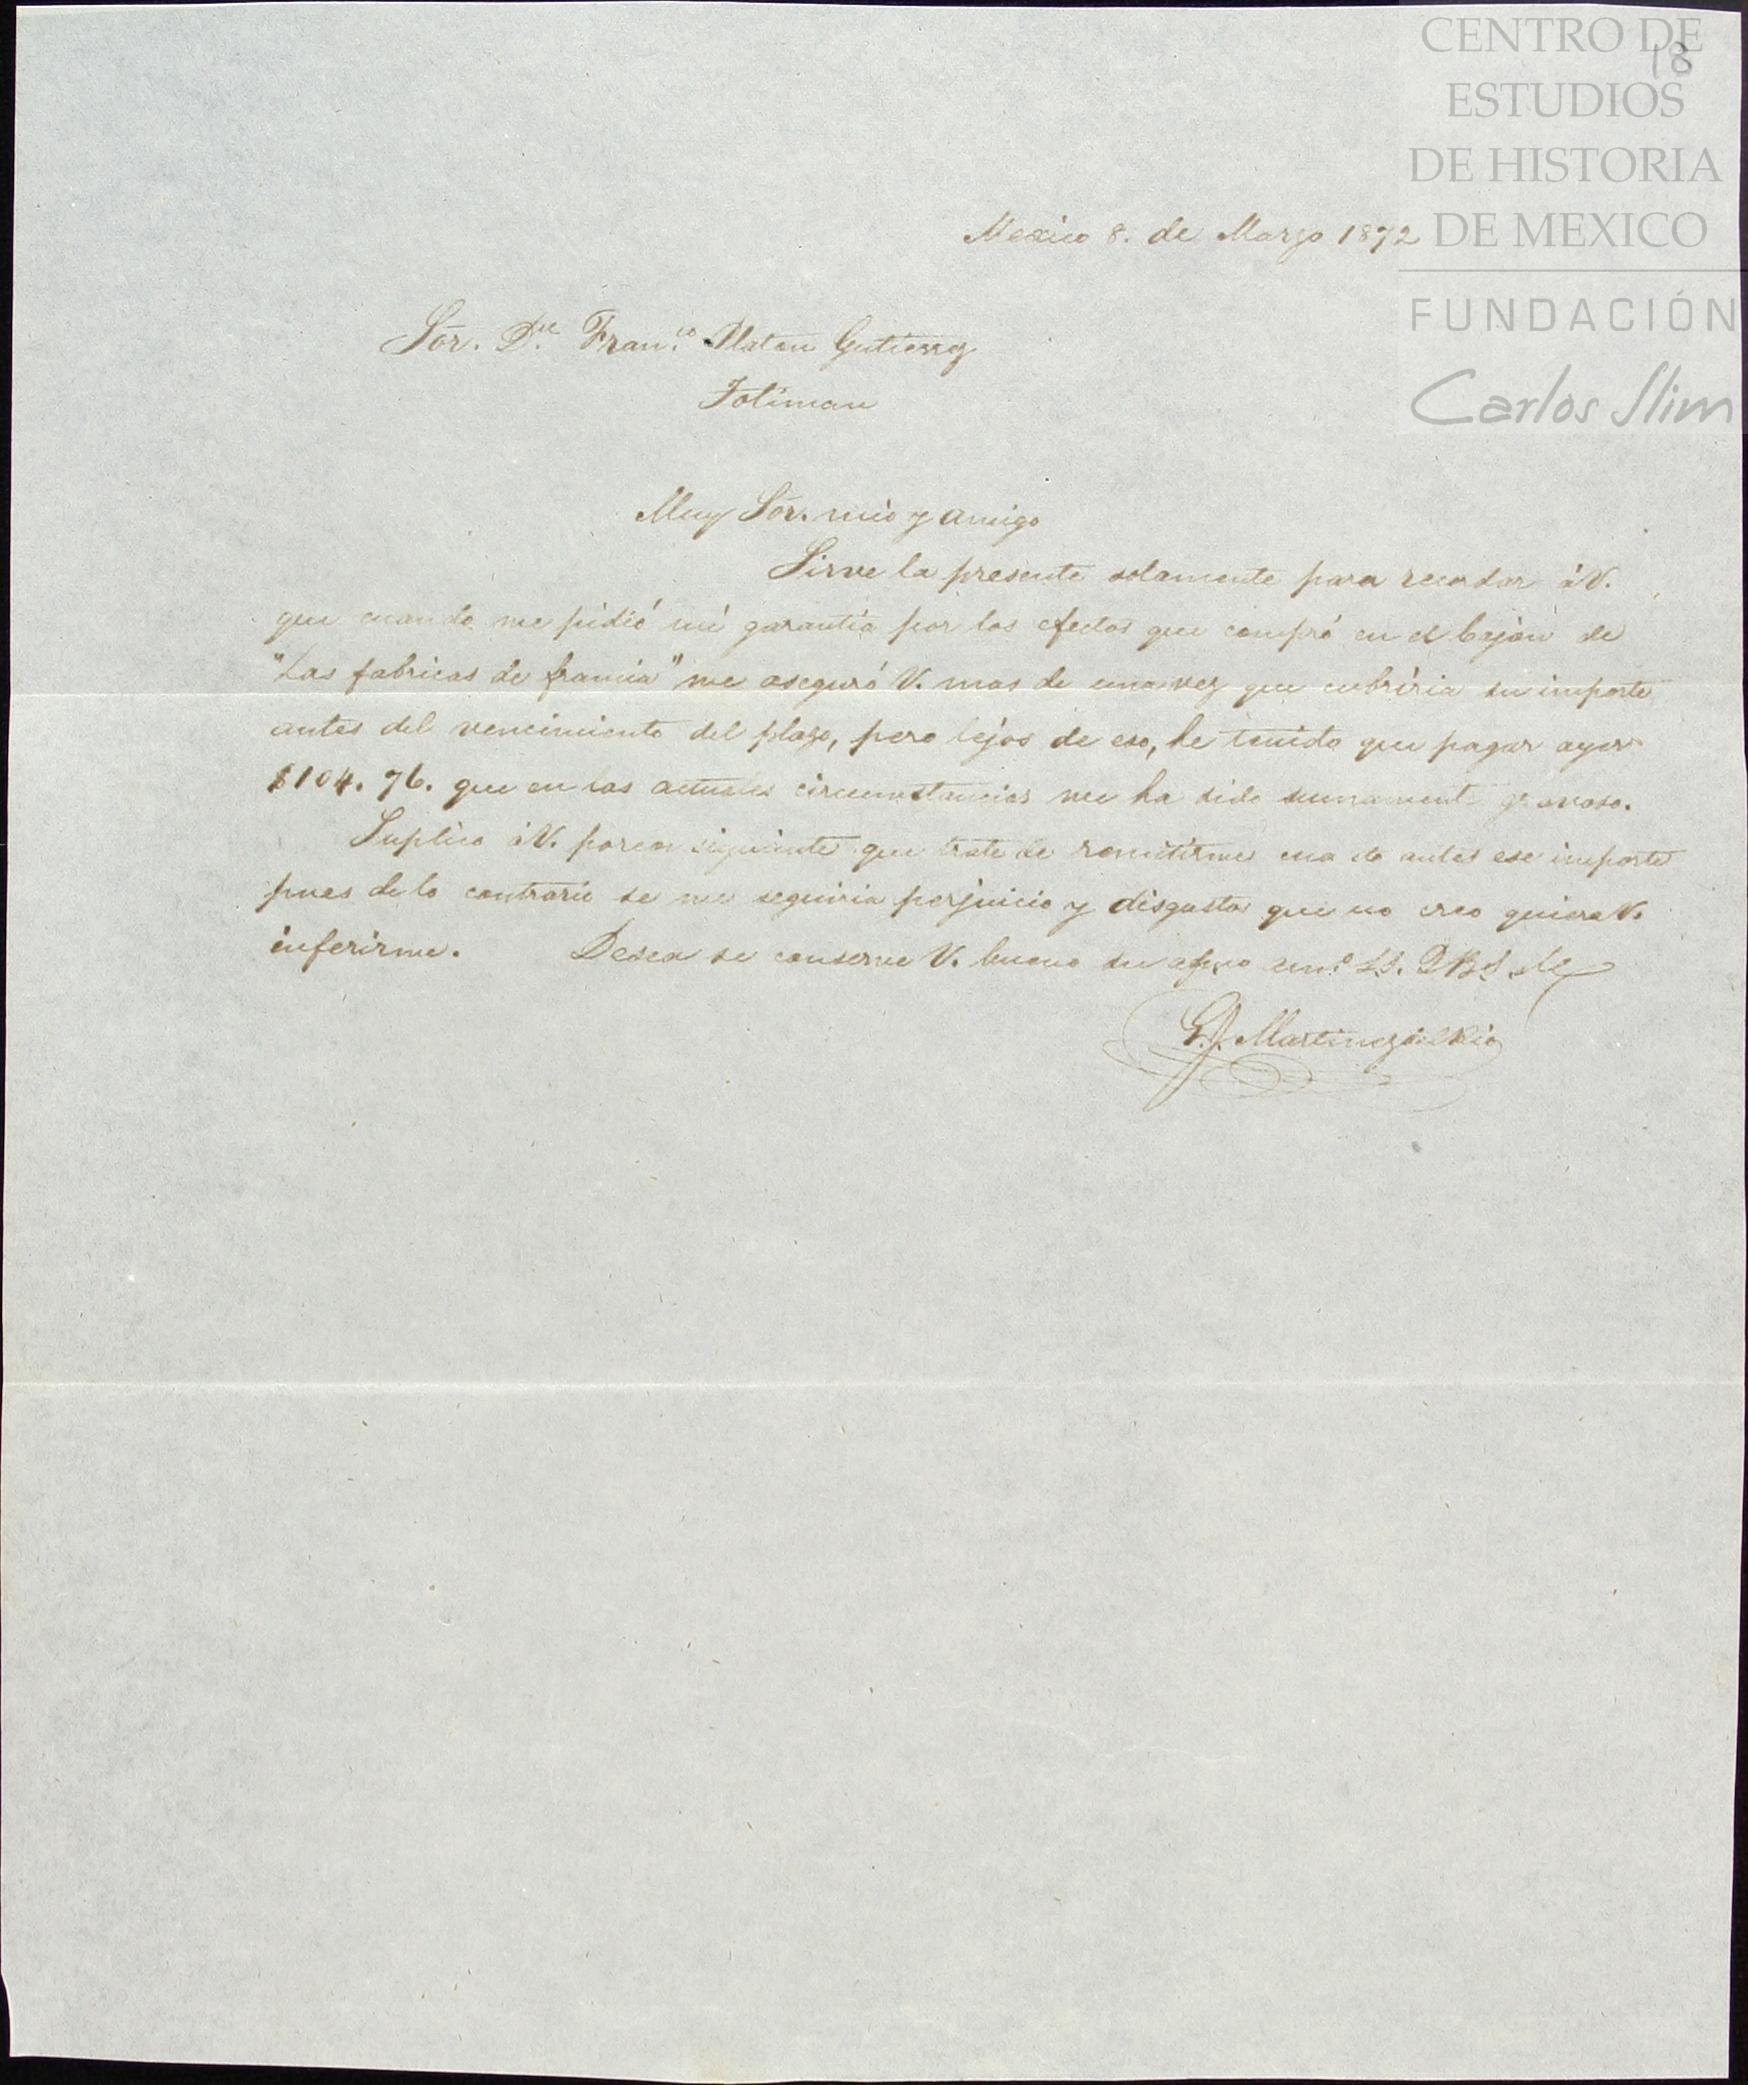 CENTRO DE
18
ESTUDIOS
DE HISTORIA
DE MEXICO
FUNDACIÓN
Carlos Slim
Mexico 8. de Marzo 1872
Sōr. Dⁿ Fran.ᶜᵒ Platon Gutierrez
Toliman
Muy Sōr. mio y amigo
Sirve la presente solamente para recordar à V.
que cuando me pidió mi garantía por los efectos que compró en el Cajon de
"Las fabricas de francia" me aseguró V. mas de una vez que cubriria su importe
antes del vencimiento del plazo, pero lejos de eso, he tenido que pagar ayer
$104.76. que en las actuales circumstancias me ha sido sumamente gravoso.
Suplico à V. por consiguiente que trate de remitirme cua to antes ese importe
pues de lo contrario se me seguiria perjuicio y disgusto que no creo quiera V.
inferirme. Desea se conserve V. bueno su afmo am.º S.S. Q.B.S.M.
G. Martinez del Rio